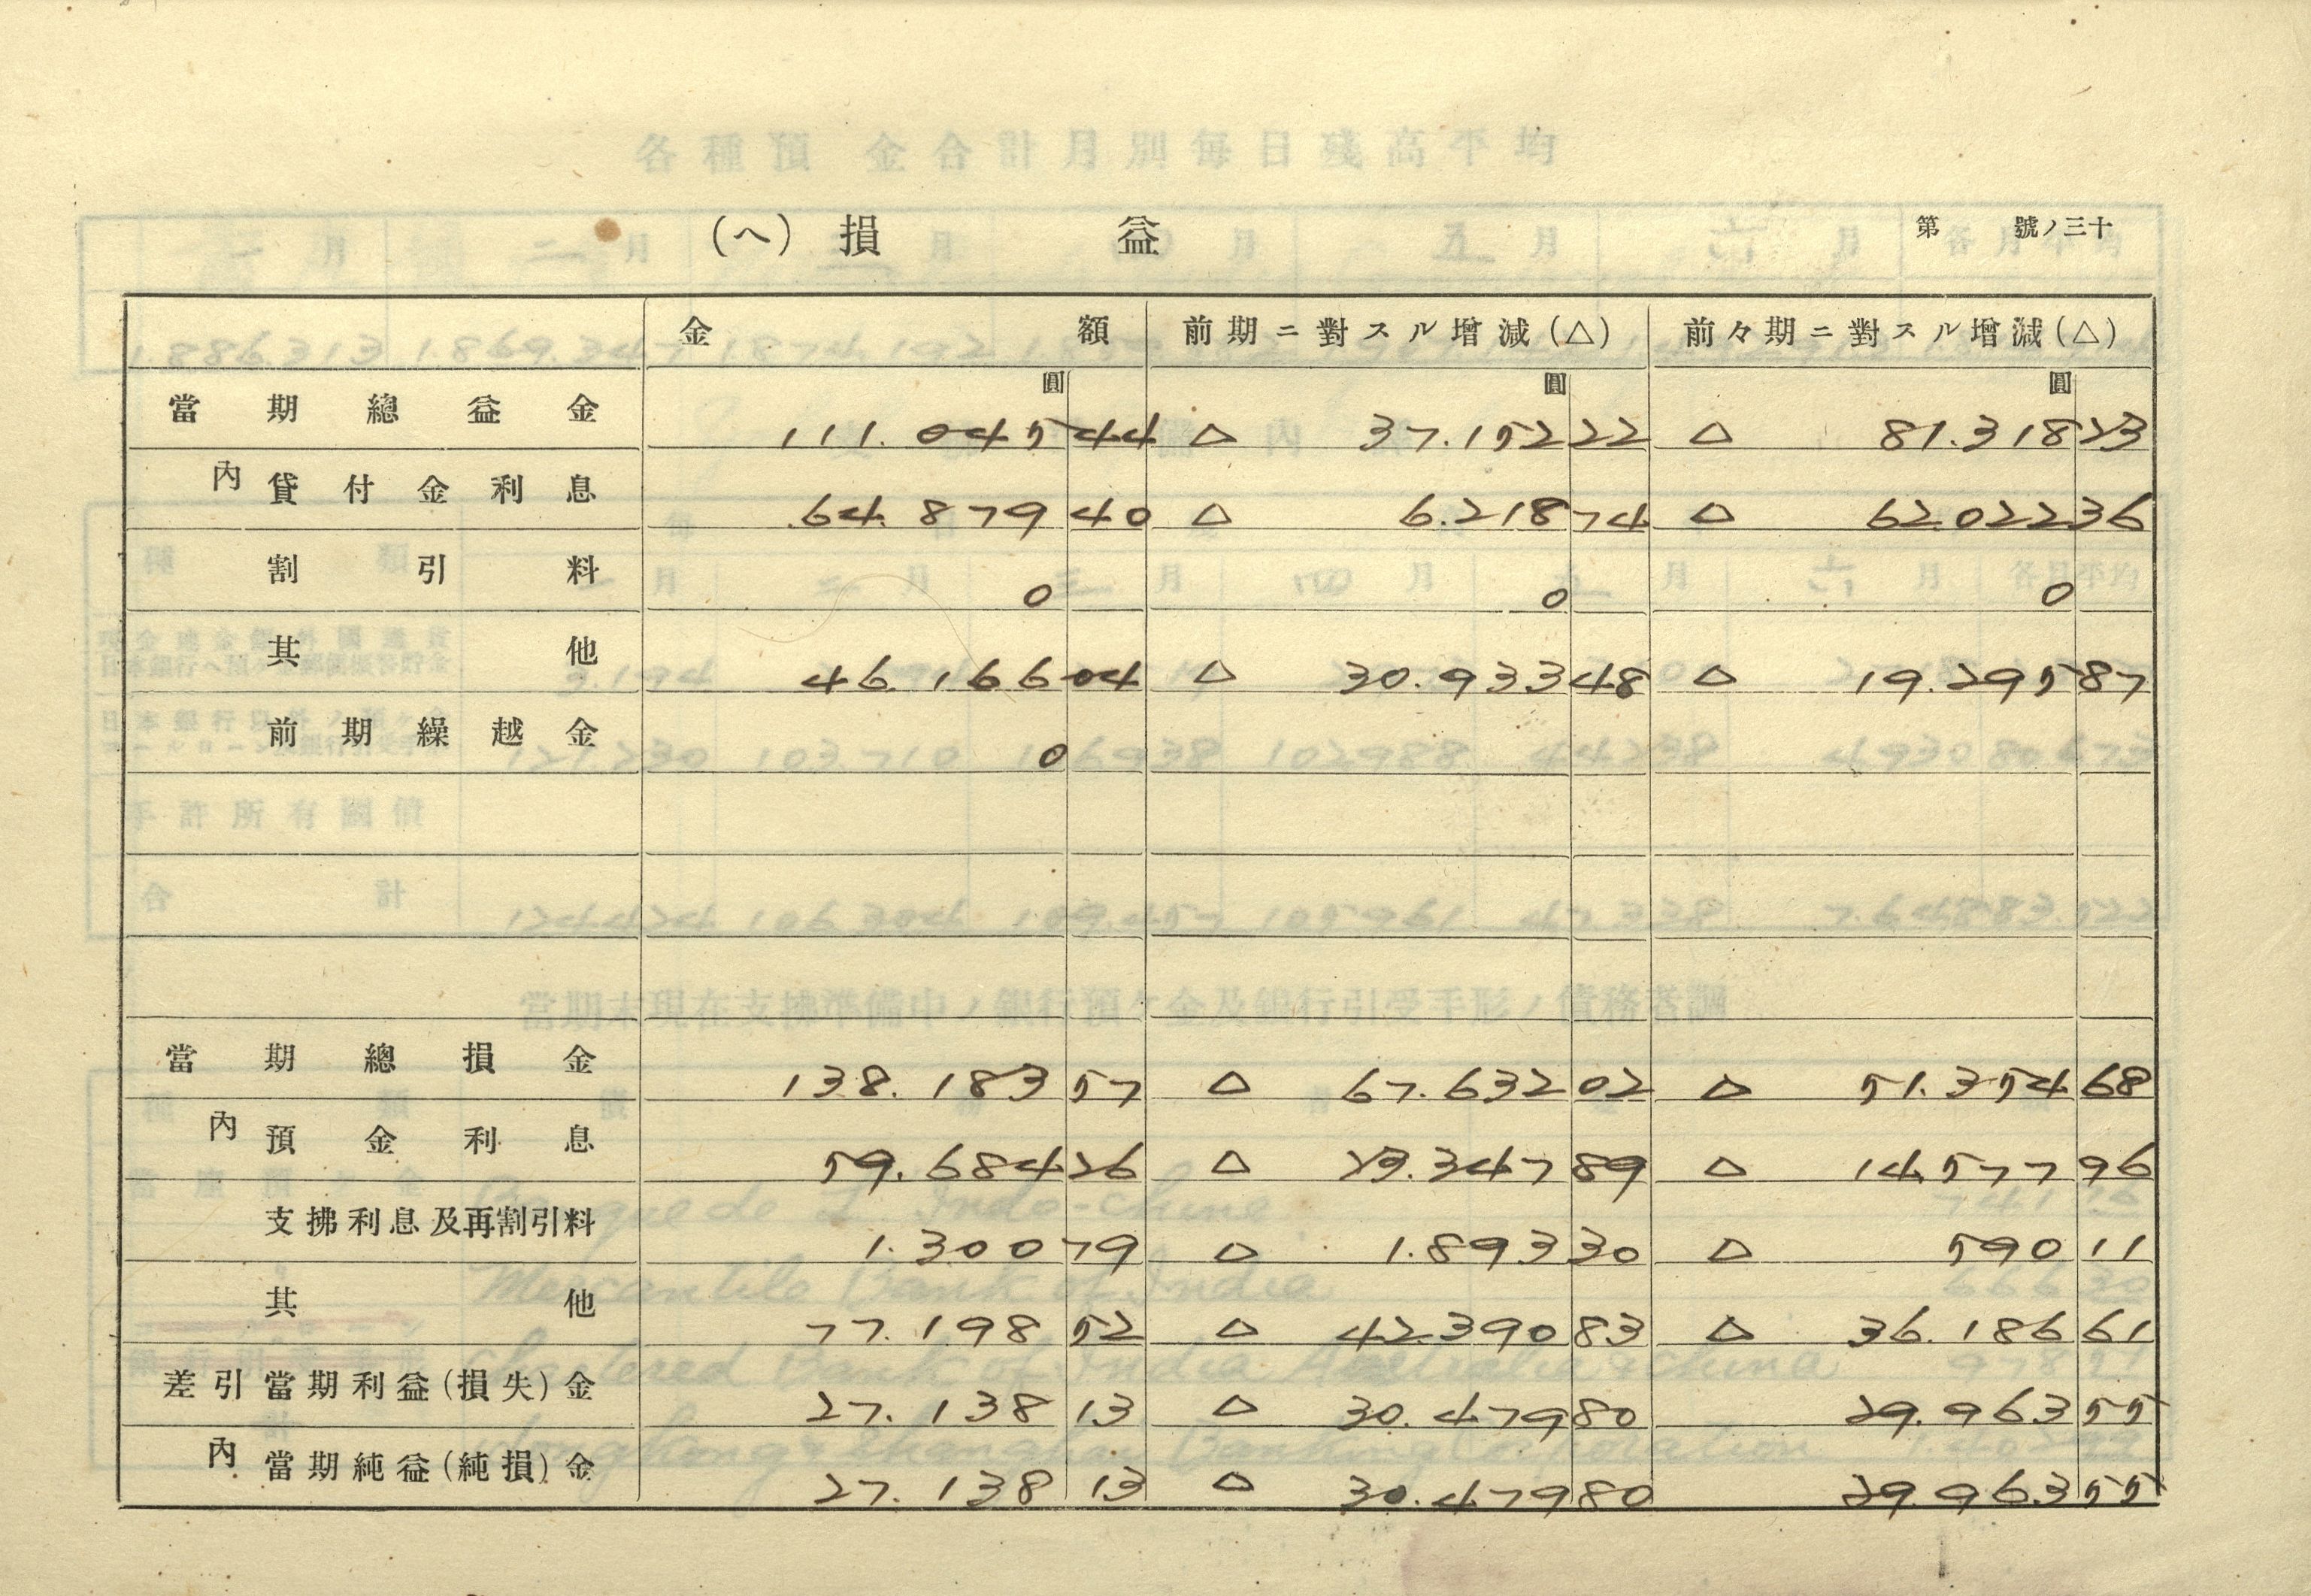 (ヘ) 損 益
第 號ノ三十
金 額 前期ニ對スル增減(△) 前々期ニ對スル增減(△)
圓 圓 圓
當期總益金 111.045 44 △ 37.152 22 △ 81.318 23
內 貸付金利息 64.879 40 △ 6.218 74 △ 62.022 36
割引料 0 0 0
其他 46.166 04 △ 30.933 48 △ 19.295 87
前期繰越金 0
當期總損金 138.183 57 △ 67.632 02 △ 51.354 68
內 預金利息 59.684 26 △ 23.347 89 △ 14.577 96
支拂利息及再割引料 1.300 79 △ 1.893 30 △ 590 11
其他 77.198 52 △ 42.390 83 △ 36.186 61
差引當期利益(損失)金 27.138 13 △ 30.479 80 29.963 55
內 當期純益(純損)金 27.138 13 △ 30.479 80 29.963 55